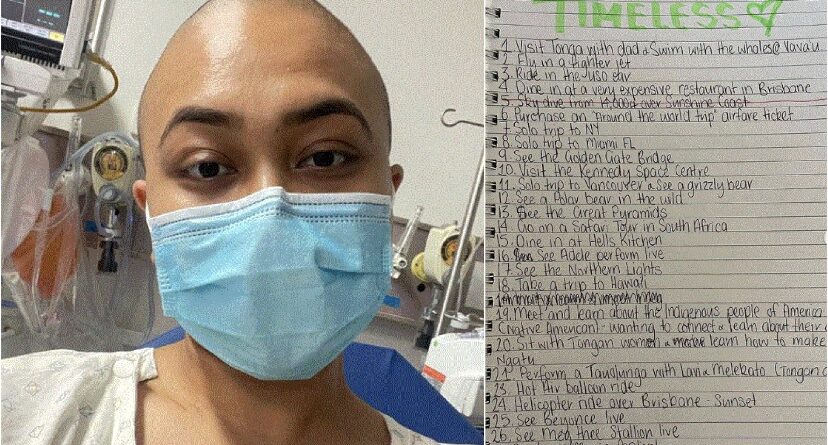 TIMELESS
1. Visit Tonga with dad & Swim with the whales @ Vava'u
2. Fly in a fighter jet
3. Ride in the
4. Dine in at a very expensive restaurant in Brisbane
5. Sky dive from over Sunshine Coast
6. Purchase an "Around the world trip" airfare ticket
7. Solo trip to NY
8. Solo trip to Miami FL
9. See the Golden Gate Bridge
10. Visit the Kennedy Space Centre
11. Solo trip to Vancouver & See a grizzly bear
12. See a Polar bear in the wild
13. See the Great Pyramids
14. Go on a Safari Tour in South Africa
15. Dine in at Hells Kitchen
16. See Adele perform live
17. See the Northern Lights
18. Take a trip to Hawaii
19. Meet and learn about the Indigenous people of America
wanting to connect & learn about their
20. Sit with Tongan women learn how to make
Ngatu
Perform a Tauolunga with Lavi & (Tongan
23. Hot Air balloon ride
24. Helicopter ride over Brisbane - Sunset
25. See Beyonce live
26. See Meg thee Stallion live